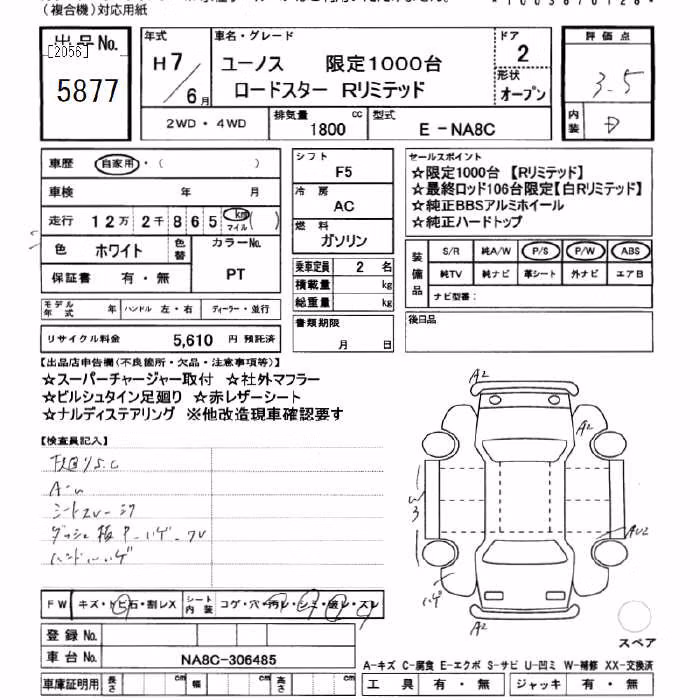 (複合機)対応用紙
出品No.
[2056]
5877
年式
H7/6月
車名・グレード
ユーノス 限定1000台
ロードスター Rリミテッド
ドア
2
形状
オープン
評価点
3.5
内装
D
2WD・4WD
排気量
1800 cc
型式
E-NA8C
車歴 自家用・( )
車検 年 月
走行 12万2千865 km マイル ( )
色 ホワイト 色替 カラーNo.
保証書 有・無 PT
モデル年式 年 ハンドル 左・右 ディーラー・並行
リサイクル料金 5,610 円 預託済
シフト
F5
冷房
AC
燃料
ガソリン
乗車定員 2 名
積載量 kg
総重量 kg
書類期限
月 日
セールスポイント
☆限定1000台 【Rリミテッド】
☆最終ロッド106台限定【白Rリミテッド】
☆純正BBSアルミホイール
☆純正ハードトップ
装備品
S/R 純A/W P/S P/W ABS
純TV 純ナビ 革シート 外ナビ エアB
ナビ型番:
後日品
【出品店申告欄(不良箇所・欠品・注意事項等)】
☆スーパーチャージャー取付 ☆社外マフラー
☆ビルシュタイン足廻り ☆赤レザーシート
☆ナルディステアリング ※他改造現車確認要す
【検査員記入】
シートスレ
ハンドルハゲ
FW キズ・トビ石・割レX シート内装 コゲ・穴・汚レ・シミ・破レ・スレ
登録No.
車台No. NA8C-306485
車庫証明用 長さ cm 幅 cm 高さ cm
A2
A2
3
AU2
ハゲ
A2
スペア
A-キズ C-腐食 E-エクボ S-サビ U-凹ミ W-補修 XX-交換済
工具 有・無 ジャッキ 有・無